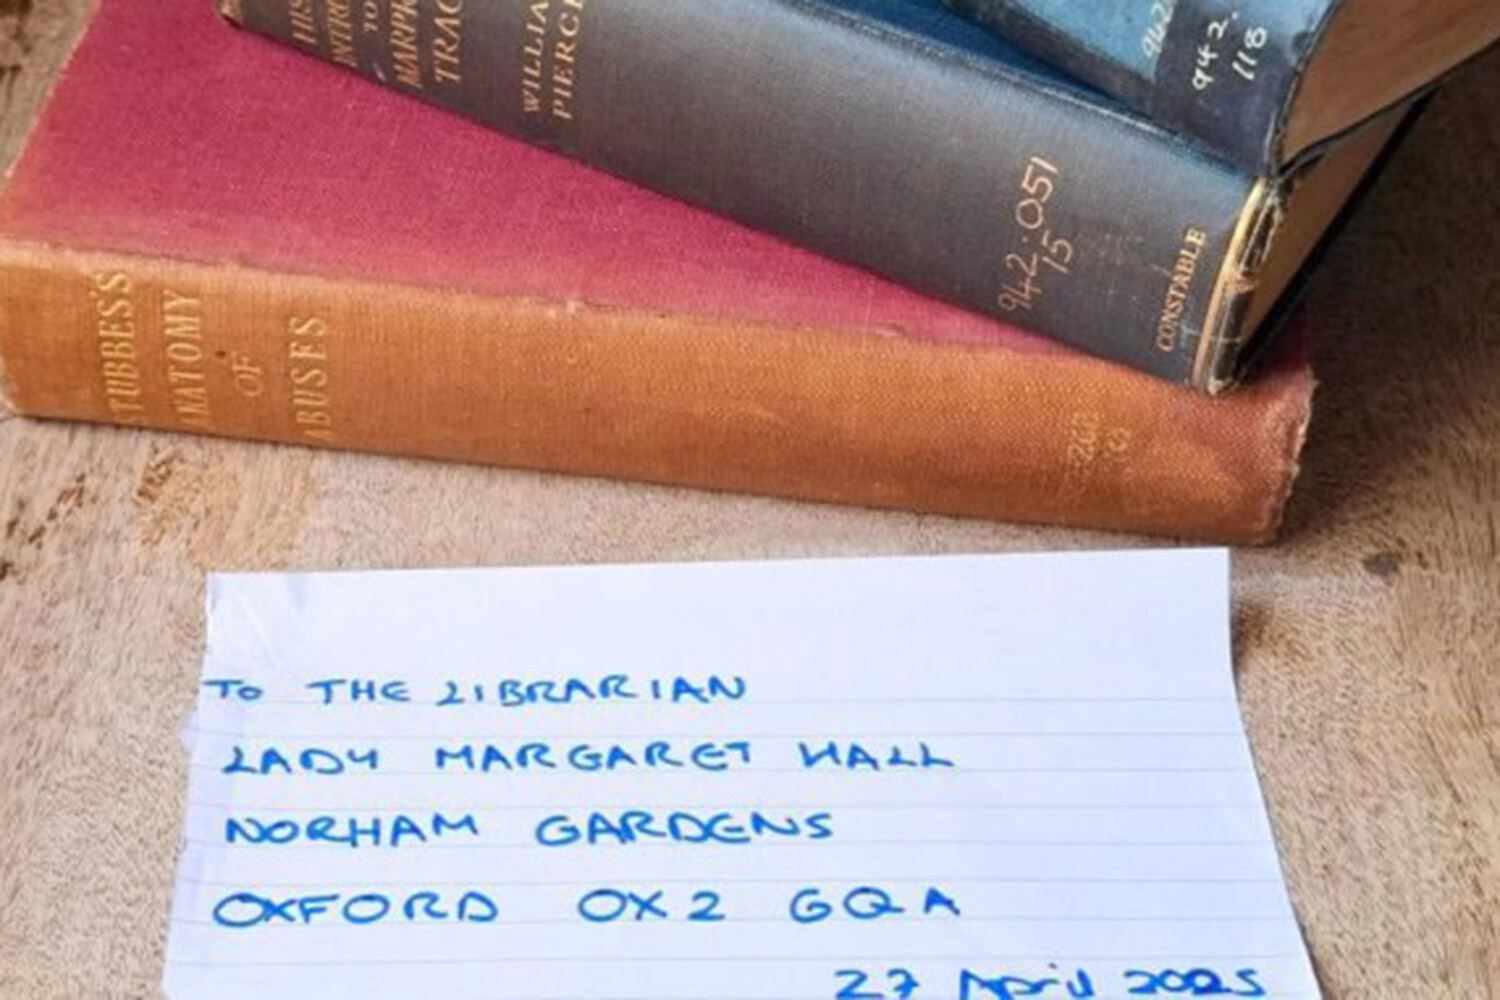 942.
118
HIS
INTRO
TO
MARPR
TRAC
WILLIA
PIERCE
942.051
15
CONSTABLE
STUBBES'S
ANATOMY
OF
ABUSES
TO THE LIBRARIAN
LADY MARGARET HALL
NORHAM GARDENS
OXFORD OX2 GQA
27 April 2025